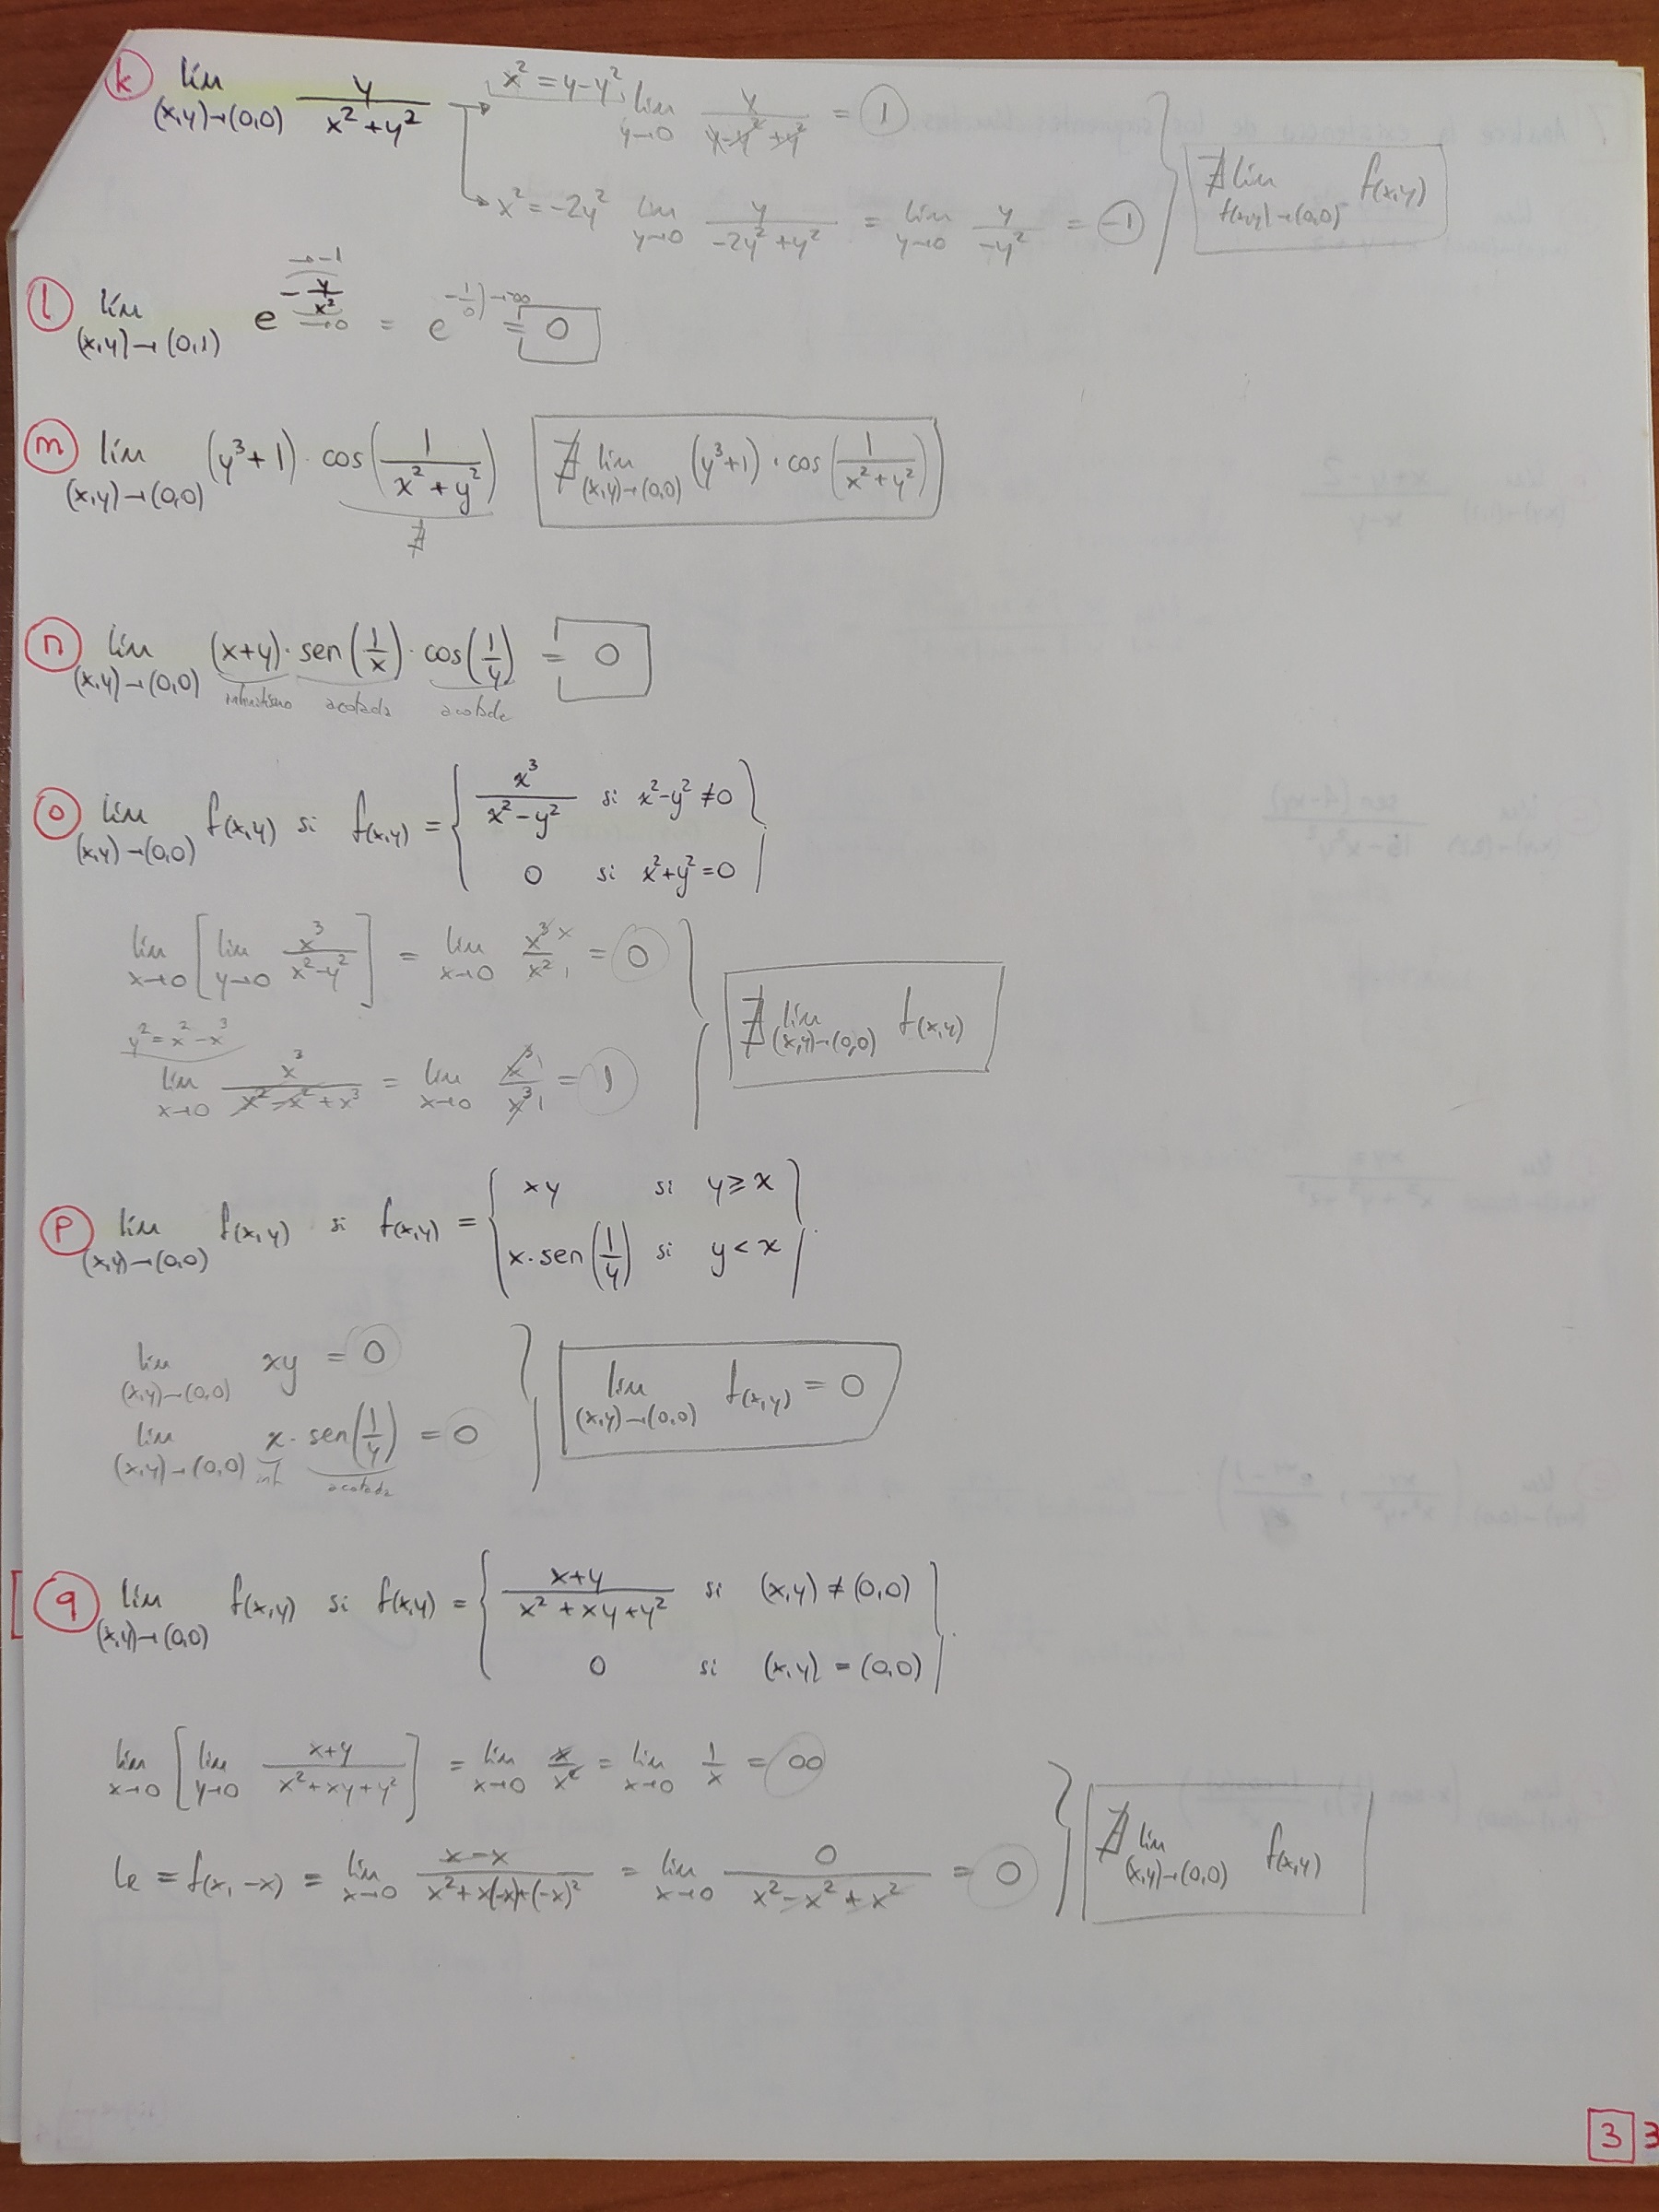 k lím (x,y)→(0,0) y/(x²+y²) → x²=y-y²; lím y→0 y/(y-y²+y²) = 1
→ x²=-2y² lím y→0 y/(-2y²+y²) = lím y→0 y/-y² = -1 } ∄ lím f(x,y)→(0,0) f(x,y)
l lím (x,y)→(0,1) e^(-y/x²) →-1 →0 = e^(-1/0) →∞ = 0
m lím (x,y)→(0,0) (y³+1)·cos(1/(x²+y²)) ∄ ∄ lím (x,y)→(0,0) (y³+1)·cos(1/(x²+y²))
n lím (x,y)→(0,0) (x+y)·sen(1/x)·cos(1/y) = 0
acotada acotada
o lím (x,y)→(0,0) f(x,y) si f(x,y) = { x³/(x²-y²) si x²-y²≠0
0 si x²+y²=0 }.
lím x→0 [lím y→0 x³/(x²-y²)] = lím x→0 x³/x² x/1 = 0
y²=x²-x³
lím x→0 x³/(x²-x²+x³) = lím x→0 x³/x³ 1/1 = 1 } ∄ lím (x,y)→(0,0) f(x,y)
p lím (x,y)→(0,0) f(x,y) si f(x,y) = { xy si y≥x
x·sen(1/y) si y<x }.
lím (x,y)→(0,0) xy = 0
lím (x,y)→(0,0) x·sen(1/y) = 0 } lím (x,y)→(0,0) f(x,y) = 0
inf acotada
q lím (x,y)→(0,0) f(x,y) si f(x,y) = { (x+y)/(x²+xy+y²) si (x,y)≠(0,0)
0 si (x,y)=(0,0) }.
lím x→0 [lím y→0 (x+y)/(x²+xy+y²)] = lím x→0 x/x² = lím x→0 1/x = ∞
= f(x,-x) = lím x→0 (x-x)/(x²+x(-x)+(-x)²) = lím x→0 0/(x²-x²+x²) = 0 } ∄ lím (x,y)→(0,0) f(x,y)
3 3